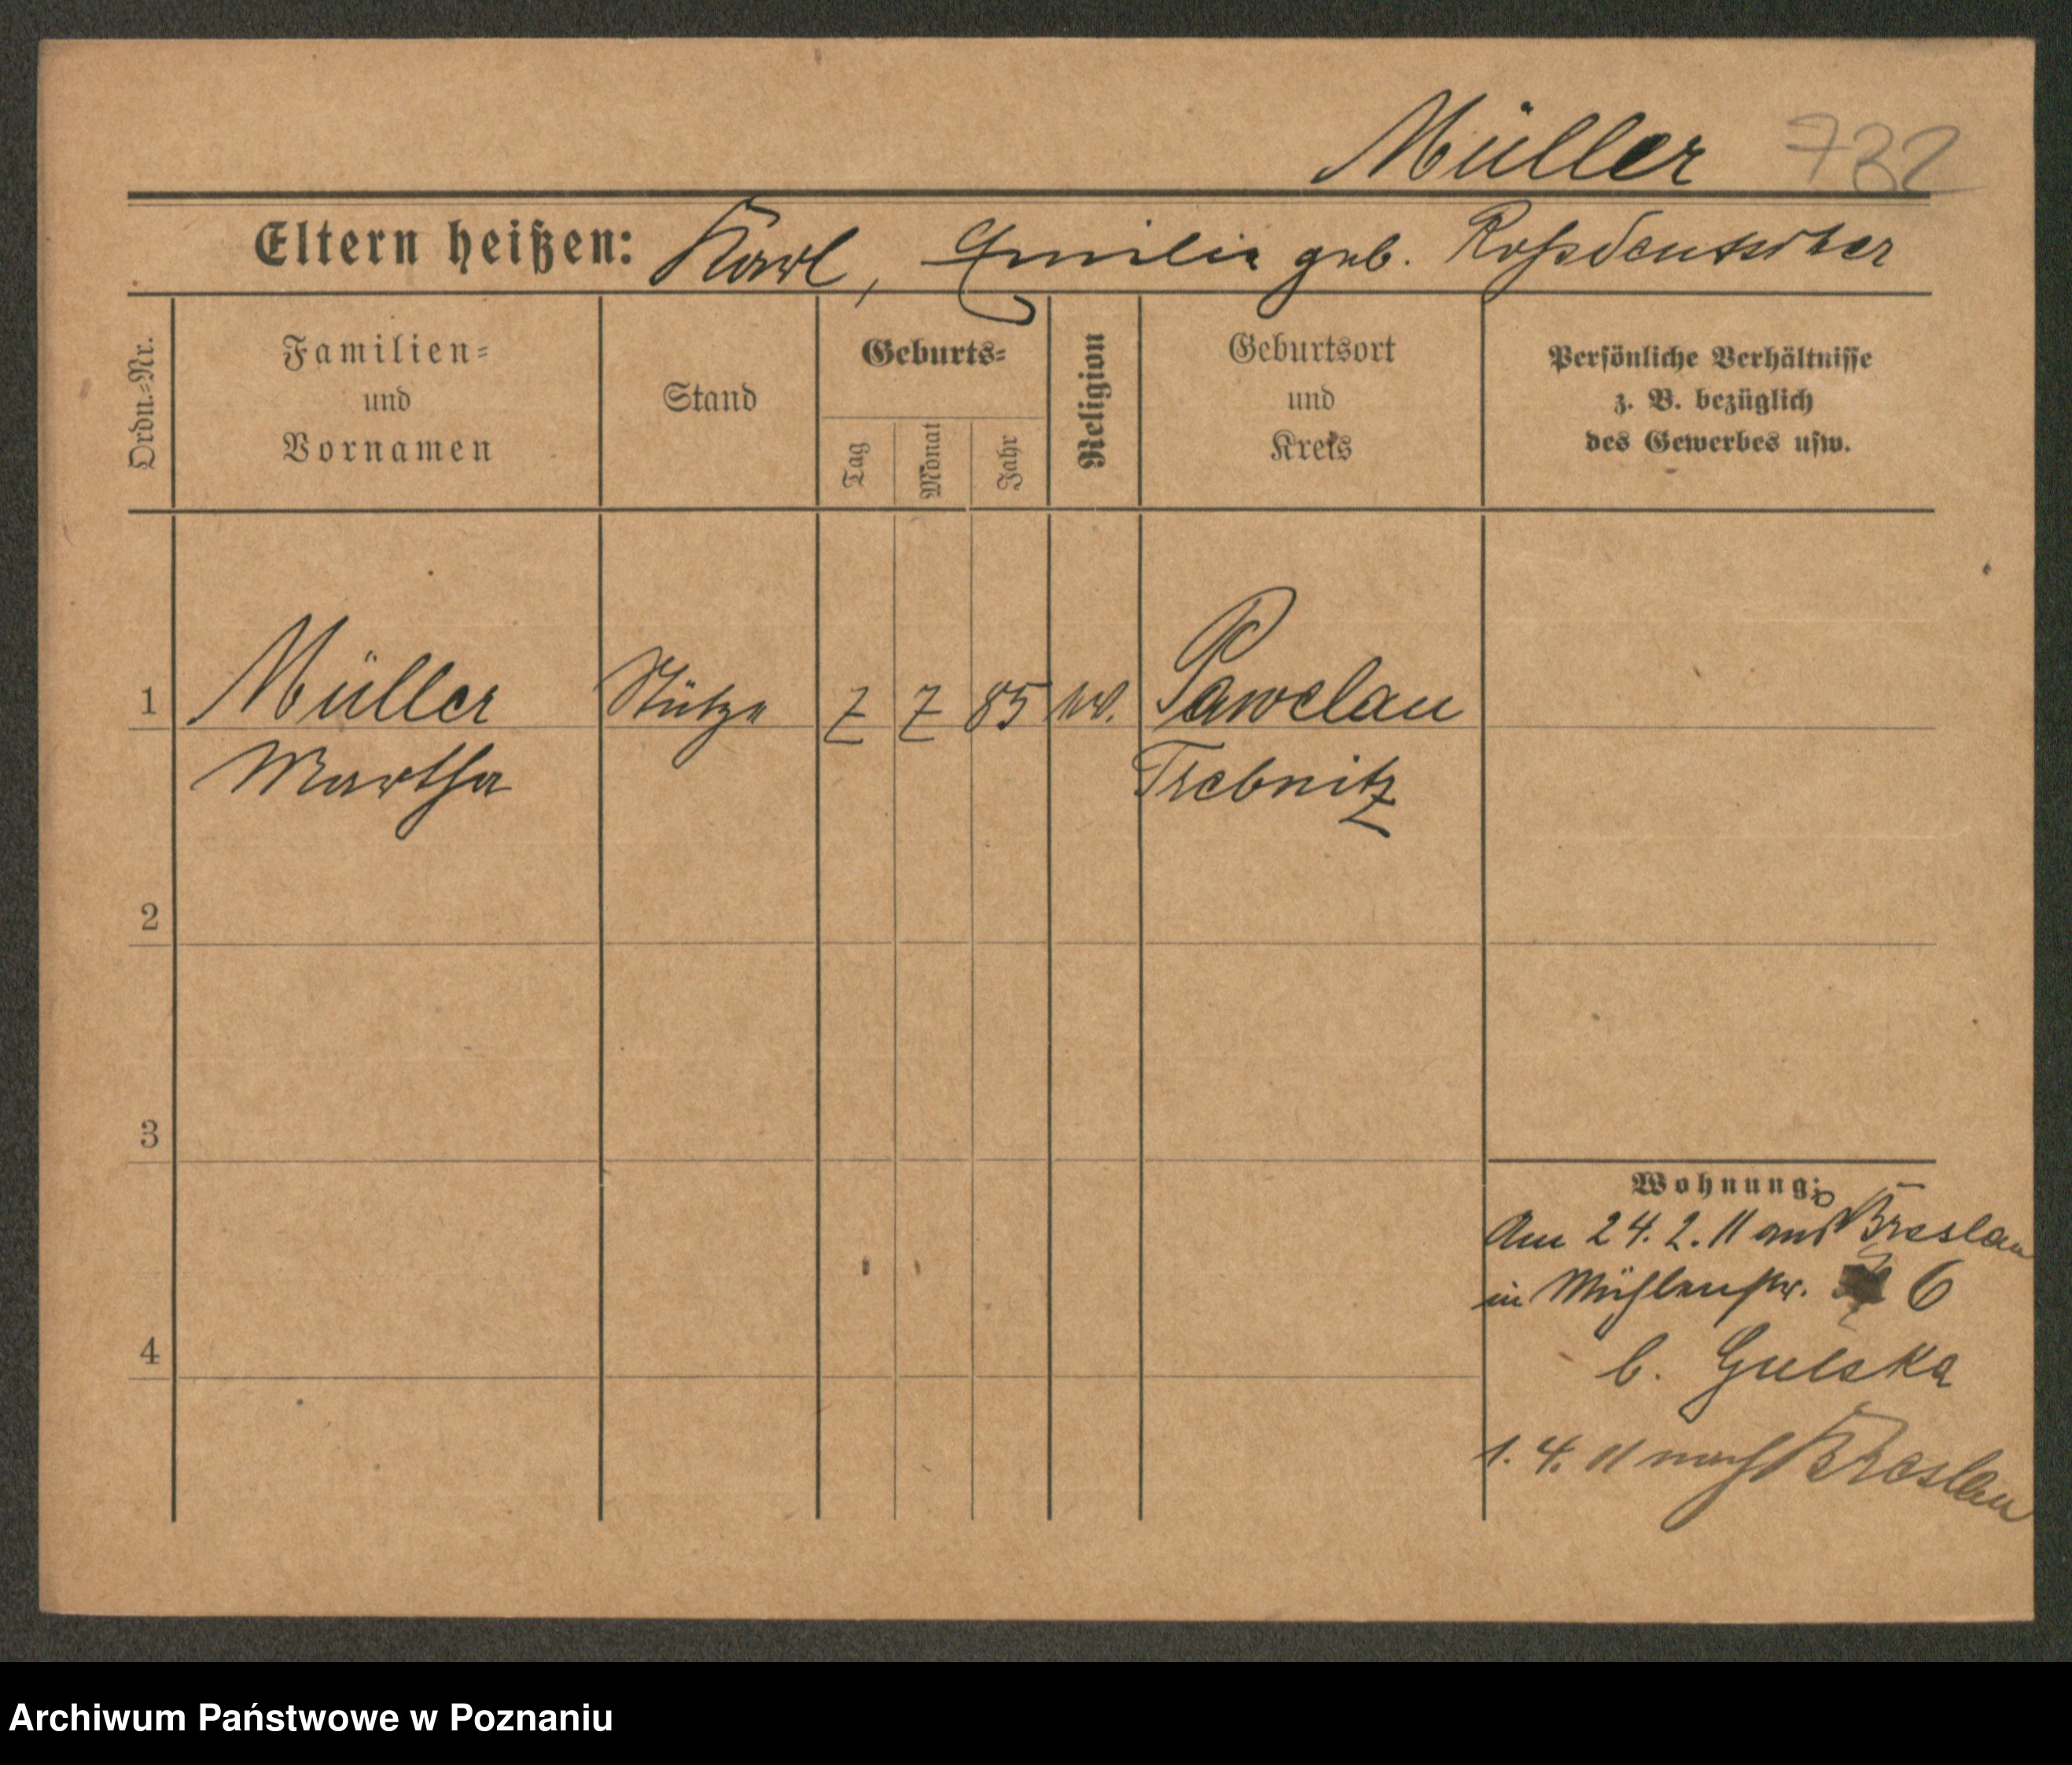 Müller 732
Eltern heißen: Karl, Emilie geb. Roßdeutscher
Ordn.-Nr.
Familien-
und
Vornamen
Stand
Geburts-
Tag
Monat
Jahr
Religion
Geburtsort
und
Kreis
Persönliche Verhältnisse
z. B. bezüglich
des Gewerbes usw.
1 Müller Stütze 7 7 85 ev. Pawelau
Martha Trebnitz
2
3
4
Wohnung:
Am 24. 2. 11 aus Breslau
in Mühlenstr. 6
b. Gulska
1. 4. 11 nach Breslau
Archiwum Państwowe w Poznaniu